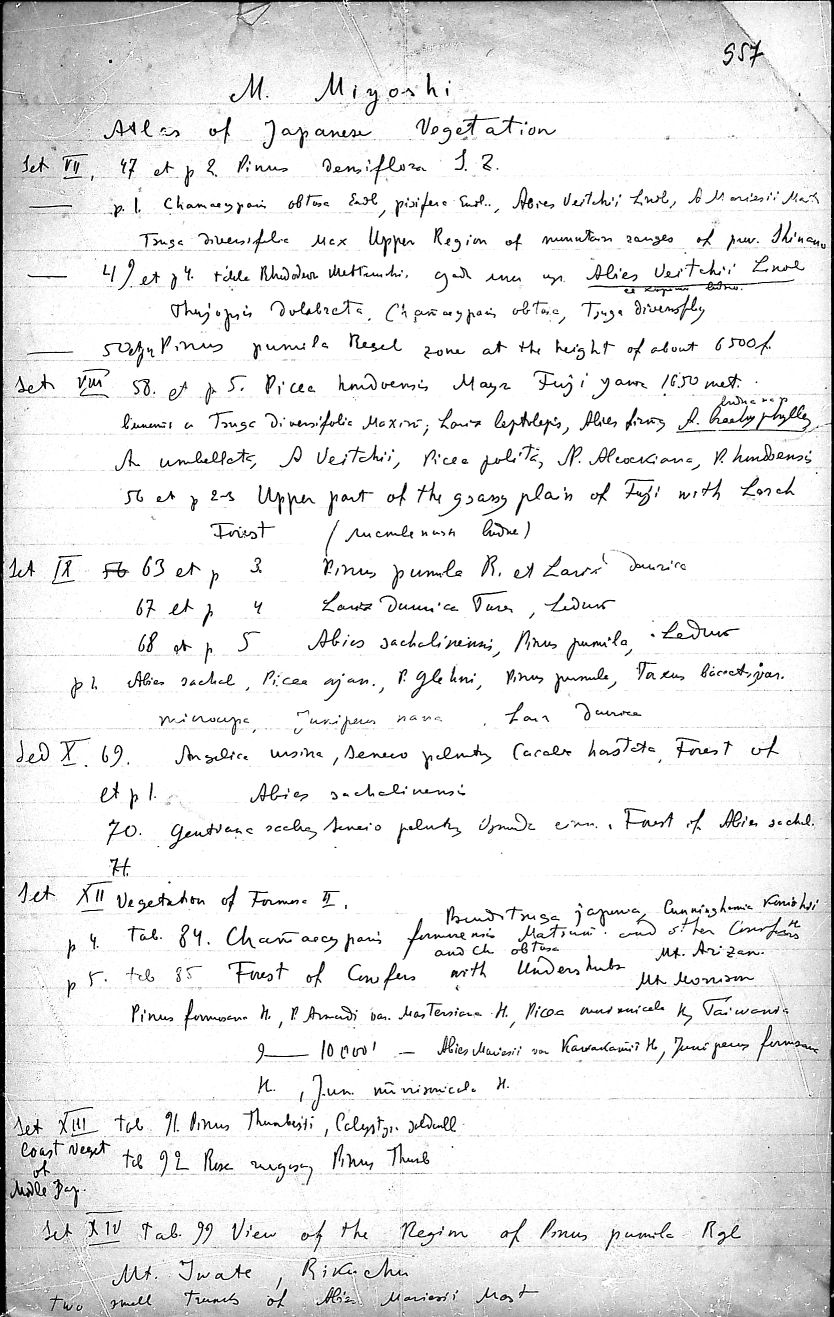 957
M. Miyoshi
Atlas of Japanese Vegetation
Set VII, 47 et p 2. Pinus densiflora S. Z.
— p. 1. Chamaecyparis obtusa Endl, pisifera Endl., Abies Veitchii Lindl, A Mariesii Mast
Tsuga diversifolia Max Upper Region of mountain ranges of prov. Shinano
— 49 et p 4. Abies Veitchii Lindl
Thujopsis dolabrata, Chamaecyparis obtusa, Tsuga diversifly
— 50 Pinus pumila Regel zone at the height of about 6500f.
Set VIII 58. et p 5. Picea hondoensis Mayr Fuji yama 1650 met.
Tsuga diversifolia Maxim, Larix leptolepis, Abies firma, A. brachyphylla
A. umbellata, A Veitchii, Picea polita, P. Alcockiana, P. hondoensis
56 et p 2-3 Upper part of the grassy plain of Fuji with Larch
Forest
Set IX 56 63 et p 3. Pinus pumila R. et Larix daurica
67 et p 4 Larix Daurica Turcz, Ledum
68 et p 5 Abies sachalinensis, Pinus pumila, Ledum
p 1. Abies sachal, Picea ajan., P. Glehni, Pinus pumila, Taxus baccata var.
microcarpa, Juniperus nana, Larix Daurica
Sed X. 69. Angelica ursina, Senecio palmatus Cacalia hastata, Forest of
et p 1. Abies sachalinensis
70. Gentiana Senecio palmatus Osmunda cinn., Forest of Abies sachal.
71.
Set XII Vegetation of Formosa II.
Pseudotsuga japonica, Cunninghamia Konishii
p 4. Tab. 84. Chamaecyparis formosensis Matsum. and other Conifers
and Ch obtusa Mt. Arizan.
p 5. tab 85 Forest of Conifers with Undershrubs Mt Morrison
Pinus formosana H., P. Armandi var. Mastersiana H., Picea morrisonicola H, Taiwania
9—10000' — Abies Mariesii var Kawakamii H, Juniperus formosana
H., Jun. morrisonicola H.
Set XIII tab 91. Pinus Thunbergii, Calystegia soldanell
Coast Veget
of
Midle Jap.
tab 92 Rosa rugosa, Pinus Thunb
Set XIV tab. 99 View of the Region of Pinus pumila Rgl
Mt. Iwate, Rikuchu
two small trunks of Abies Mariesii Mast